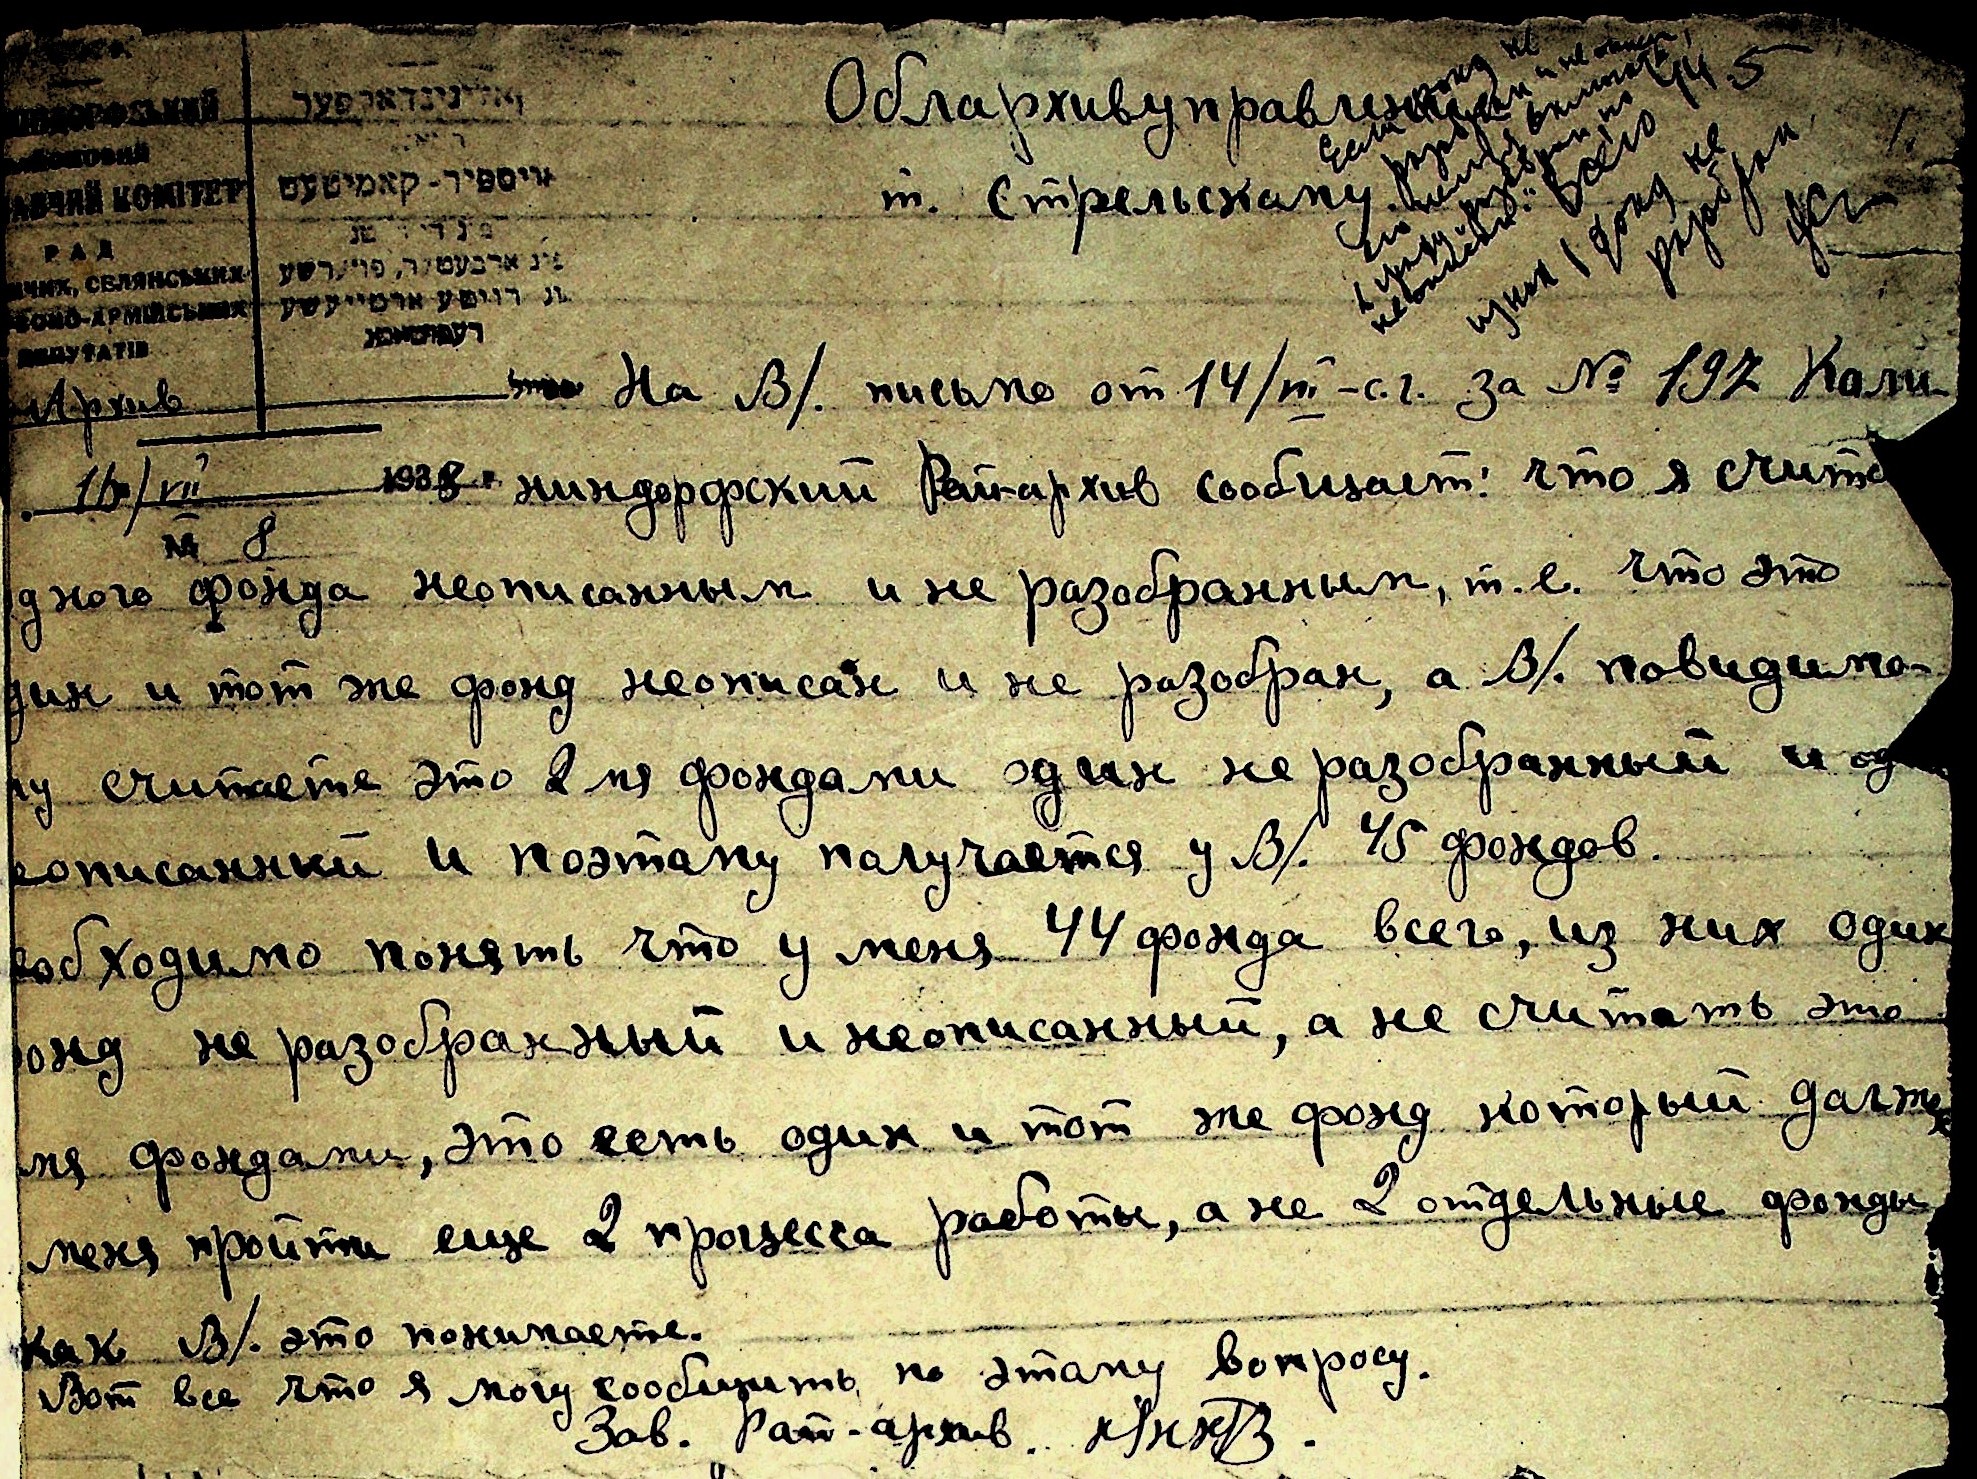 КОМІТЕТ
РАД
СЕЛЯНСЬКИХ
АРМІЙСЬКИХ
ДЕПУТАТІВ
Архив
16/VII 1938 г.
№ 8
קאמיטעט
Облархивуправлению
т. Стрельскому.
фонд не
разобран
На В/. письмо от 14/VII-с.г. за № 197 Кали-
ниндорфский Рай-архив сообщает: что я счита
дного фонда неописанным и не разобранным, т.е. что это
дин и тот же фонд неописан и не разобран, а В/. повидимо-
му считаете это 2мя фондами один не разобранный и од
еописанный и поэтому получается у В/. 45 фондов.
еобходимо понять что у меня 44 фонда всего, из них один
онд не разобранный и неописанный, а не считать это
мя фондами, это есть один и тот же фонд который долж
меня пройти еще 2 процесса работы, а не 2 отдельные фонды
как В/. это понимаете.
Вот все что я могу сообщить по этому вопросу.
Зав. Рай-архив.